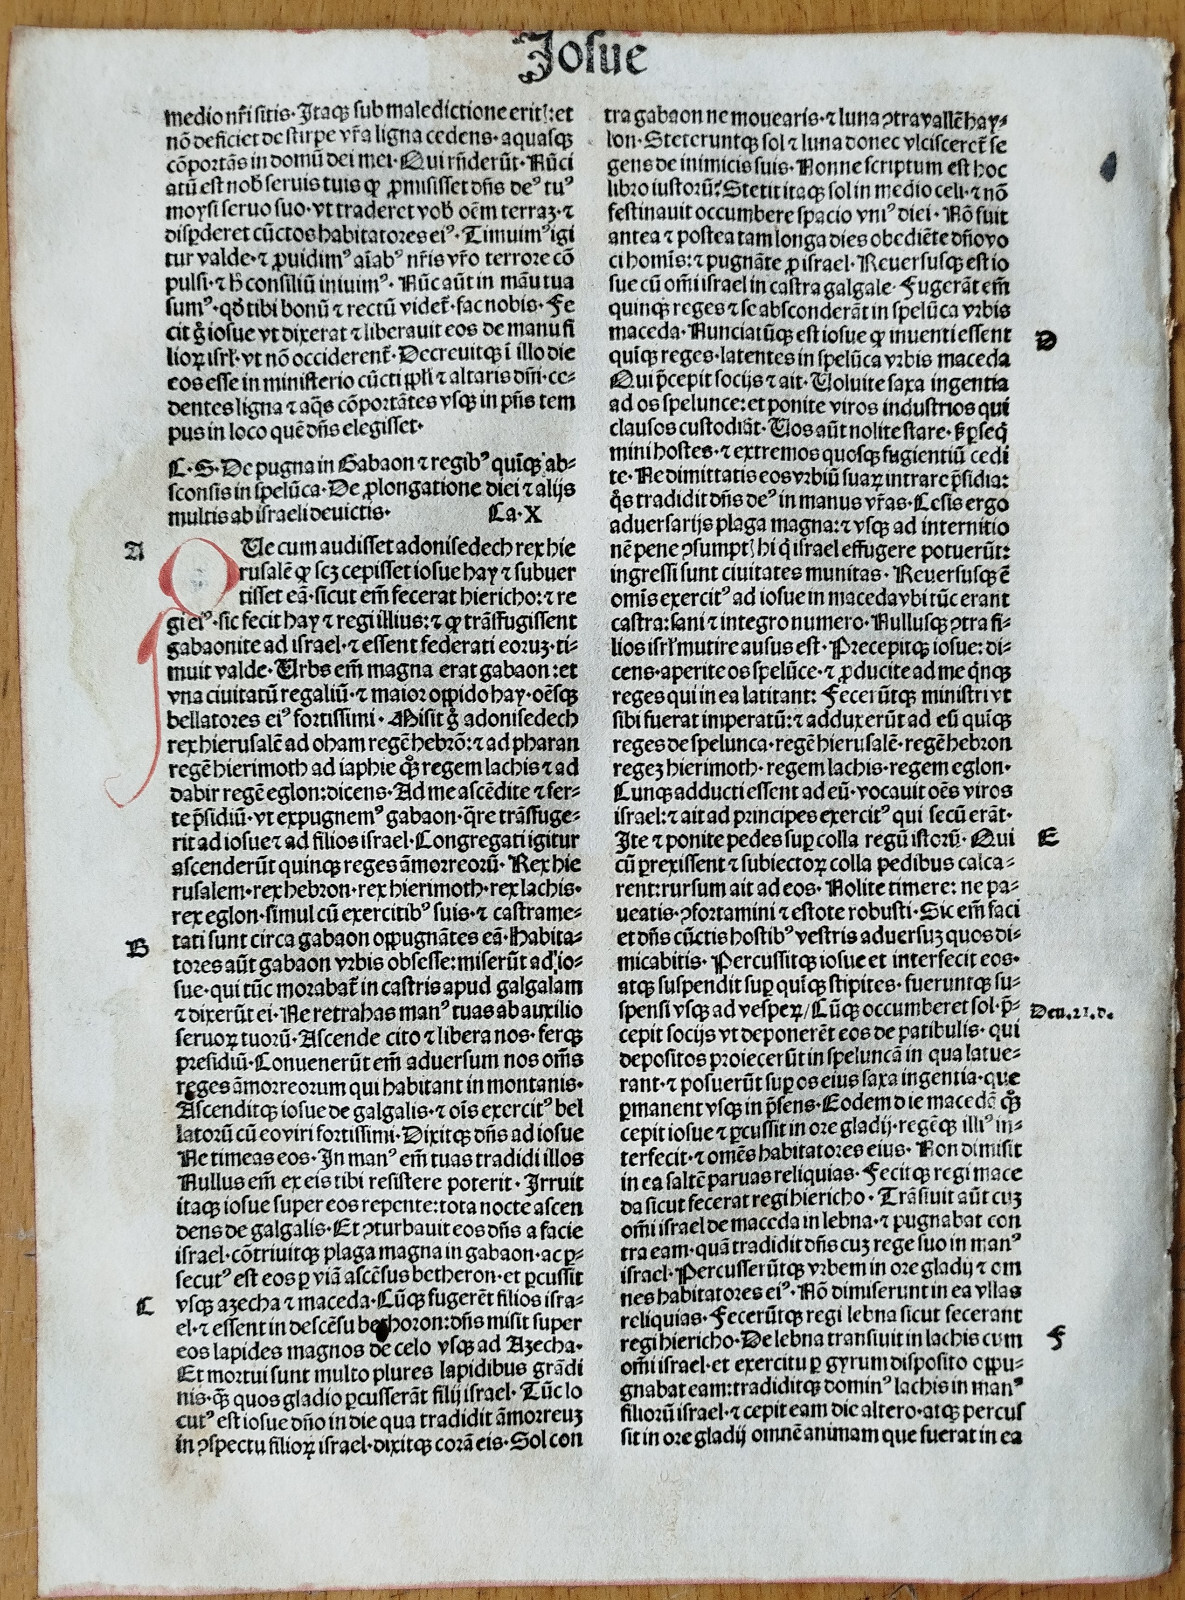 Josue
medio nr̄i sitis· Itaqꝫ sub maledictione eritis:et
nō deficiet de stirpe vr̄a ligna cedens· aquasqꝫ
cōportās in domū dei mei· Qui rn̄derūt· Nūci
atū est nob̄ seruis tuis ꝙ ꝓmisisset dn̄s deꝰ tuꝰ
moysi seruo suo· vt traderet vob̄ oēm terraꝫ· ⁊
disꝑderet cūctos habitatores eiꝰ· Timuimꝰ igi
tur valde· ⁊ ꝓuidimꝰ aīabꝰ nr̄is vr̄o terrore cō
pulsi· ⁊ h̄ consiliū iniuimꝰ· Nūc aūt in māu tua
sumꝰ· qd̄ tibi bonū ⁊ rectū videt̄· fac nobis· Fe
cit g̊ iosue vt dixerat ⁊ liberauit eos de manu fi
lioꝝ isrl̄· vt nō occiderent̄· Decreuitqꝫ ī illo die
eos esse in ministerio cūcti ppl̄i ⁊ altaris dn̄i· ce-
dentes ligna ⁊ aq̄s cōportātes vsqꝫ in pn̄s tem
pus in loco quē dn̄s elegisset·
C· S· De pugna in Gabaon ⁊ regibꝰ quīqꝫ ab-
sconsis in spelūca· De ꝓlongatione diei ⁊ alijs
multis ab israel deuictis· Ca· X
A
Ue cum audisset adonisedech rex hie
rusalē ꝙ scꝫ cepisset iosue hay ⁊ subuer
tisset eā· sicut em̄ fecerat hiericho: ⁊ re
gi eiꝰ· sic fecit hay ⁊ regi illius: ⁊ ꝙ trāsfugissent
gabaonite ad israel· ⁊ essent federati eoruꝫ· ti-
muit valde· Urbs em̄ magna erat gabaon: et
vna ciuitatū regaliū· ⁊ maior oppido hay· oēsqꝫ
bellatores eiꝰ fortissimi· Misit g̊ adonisedech
rex hierusalē ad oham regē hebrō: ⁊ ad pharan
regē hierimoth ad iaphie qꝫ regem lachis ⁊ ad
dabir regē eglon: dicens· Ad me ascēdite ⁊ fer-
te p̄sidiū· vt expugnemꝰ gabaon· q̄re trāsfuge-
rit ad iosue ⁊ ad filios israel· Congregati igitur
ascenderūt quinqꝫ reges āmorreorū· Rex hie
rusalem· rex hebron· rex hierimoth· rex lachis·
rex eglon· simul cū exercitibꝰ suis· ⁊ castrame-
B
tati sunt circa gabaon oppugnātes eā· Habita-
tores aūt gabaon vrbis obsesse: miserūt ad io-
sue· qui tūc morabat̄ in castris apud galgalam
⁊ dixerūt ei· Ne retrahas manꝰ tuas ab auxilio
seruoꝝ tuorū· Ascende cito ⁊ libera nos· ferqꝫ
presidiū· Conuenerūt em̄ aduersum nos om̄s
reges āmorreorum qui habitant in montanis·
Ascenditqꝫ iosue de galgalis· ⁊ oīs exercitꝰ bel
latorū cū eo viri fortissimi· Dixitqꝫ dn̄s ad iosue
Ne timeas eos· In manꝰ em̄ tuas tradidi illos
Nullus em̄ ex eis tibi resistere poterit· Irruit
itaqꝫ iosue super eos repente: tota nocte ascen
dens de galgalis· Et ꝯturbauit eos dn̄s a facie
israel· cōtriuitqꝫ plaga magna in gabaon· ac ꝑ-
secutꝰ est eos ꝑ viā ascēsus betheron· et ꝑcussit
C
vsqꝫ azecha ⁊ maceda· Cūqꝫ fugerēt filios isra-
el· ⁊ essent in descēsu bethoron: dn̄s misit super
eos lapides magnos de celo vsqꝫ ad Azecha·
Et mortui sunt multo plures lapidibus grādi
nis· qꝫ̄ quos gladio ꝑcusserāt filij israel· Tūc lo
cutꝰ est iosue dn̄o in die qua tradidit āmorreuꝫ
in ꝯspectu filioꝝ israel· dixitqꝫ corā eis· Sol con
tra gabaon ne mouearis· ⁊ luna ꝯtra vallē hay-
lon· Steteruntqꝫ sol ⁊ luna donec vlcisceret̄ se
gens de inimicis suis· Nonne scriptum est hoc
libro iustorū? Stetit itaqꝫ sol in medio celi· ⁊ nō
festinauit occumbere spacio vniꝰ diei· Nō fuit
antea ⁊ postea tam longa dies obediēte dn̄o vo
ci homīs: ⁊ pugnāte ꝓ israel· Reuersusqꝫ est io
sue cū om̄i israel in castra galgale· Fugerāt em̄
quinqꝫ reges ⁊ se absconderāt in spelūca vrbis
maceda· Nunciatūqꝫ est iosue ꝙ inuenti essent
D
quīqꝫ reges· latentes in spelūca vrbis maceda
Qui p̄cepit socijs ⁊ ait· Uoluite saxa ingentia
ad os spelunce: et ponite viros industrios qui
clausos custodiāt· Uos aūt nolite stare· sꝫ ꝑseq̄
mini hostes· ⁊ extremos quosqꝫ fugientiū cedi
te· Ne dimittatis eos vrbiū suaꝝ intrare p̄sidia:
q̊s tradidit dn̄s deꝰ in manus vr̄as· Cesis ergo
aduersarijs plaga magna: ⁊ vsqꝫ ad internitio
nē pene ꝯsumptis hi q̇ israel effugere potuerūt:
ingressi sunt ciuitates munitas· Reuersusqꝫ ē
omīs exercitꝰ ad iosue in maceda vbi tūc erant
castra: sani ⁊ integro numero· Nullusqꝫ ꝯtra fi-
lios isrl̄ mutire ausus est· Precepitqꝫ iosue: di-
cens· aperite os spelūce· ⁊ ꝓducite ad me q̇nqꝫ
reges qui in ea latitant: Fecerūtqꝫ ministri vt
sibi fuerat imperatū: ⁊ adduxerūt ad eū quīqꝫ
reges de spelunca· regē hierusalē· regē hebron
regeꝫ hierimoth· regem lachis· regem eglon·
Cunqꝫ adducti essent ad eū· vocauit oēs viros
israel: ⁊ ait ad principes exercitꝰ qui secū erāt·
Ite ⁊ ponite pedes suꝑ colla regū istorū· Qui
E
cū ꝑrexissent ⁊ subiectoꝝ colla pedibus calca-
rent: rursum ait ad eos· Nolite timere: ne pa-
ueatis· ꝯfortamini ⁊ estote robusti· Sic em̄ faci
et dn̄s cūctis hostibꝰ vestris aduersuꝫ quos di-
micabitis· Percussitqꝫ iosue et interfecit eos·
atqꝫ suspendit suꝑ quīqꝫ stipites· fueruntqꝫ su-
spensi vsqꝫ ad vesperꝝ/ Cūqꝫ occumberet sol· p̄-
Deu.21.d.
cepit socijs vt deponerēt eos de patibulis· qui
depositos proiecerūt in speluncā in qua latue-
rant· ⁊ posuerūt suꝑ os eius saxa ingentia· que
ꝑmanent vsqꝫ in p̄sens· Eodem die macedā qꝫ
cepit iosue ⁊ ꝑcussit in ore gladij· regēqꝫ illiꝰ in-
terfecit· ⁊ omēs habitatores eius· Non dimisit
in ea saltē paruas reliquias· Fecitqꝫ regi mace
da sicut fecerat regi hiericho· Trāsiuit aūt cuꝫ
om̄i israel de maceda in lebna· ⁊ pugnabat con
tra eam· quā tradidit dn̄s cuꝫ rege suo in manꝰ
israel· Percusserūtqꝫ vrbem in ore gladij ⁊ om
nes habitatores eiꝰ· Nō dimiserunt in ea vllas
reliquias· Fecerūtqꝫ regi lebna sicut fecerant
regi hiericho· De lebna transiuit in lachis cum
F
om̄i israel· et exercitu ꝑ gyrum disposito oppu-
gnabat eam: tradiditqꝫ dominꝰ lachis in manꝰ
filiorū israel· ⁊ cepit eam die altero· atqꝫ percus
sit in ore gladij omnē animam que fuerat in ea